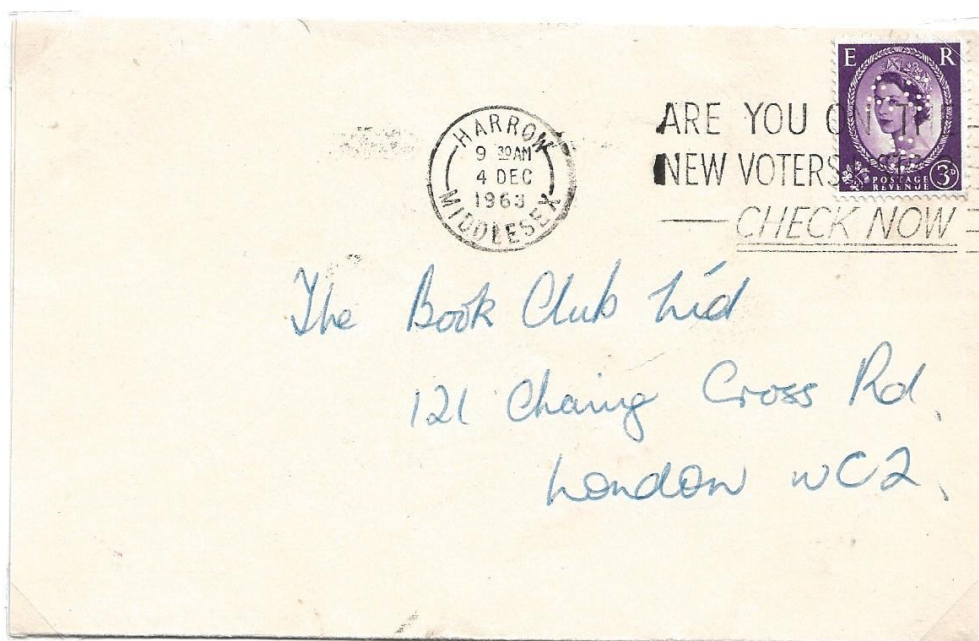 HARROW
9 30AM
4 DEC
1963
MIDDLESEX
ARE YOU ON
NEW VOTERS
CHECK NOW
E R
POSTAGE
REVENUE
3D
The Book Club Ltd
121 Charing Cross Rd,
London WC2,